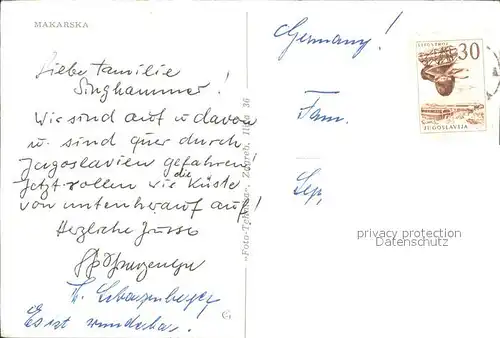 MAKARSKA
Liebe Familie
Singhammer!
Wir sind auf u davon
u. sind quer durch
Jugoslavien gefahren!
Jetzt rollen wir die Küste
von unten herauf auf!
Herzliche Grüsse
Es ist wunderbar!
"Foto-Tehnika", Zagreb, 36
Germany!
Fam.
30
JUGOSLAVIJA
privacy protection
Datenschutz